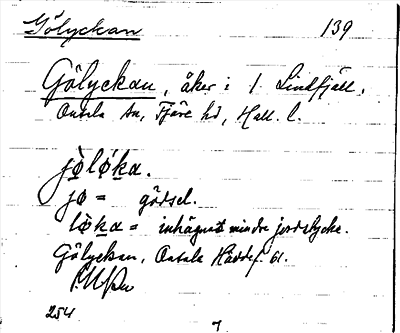 Gölyckan 139
Gölyckan, åker i 1 Lindfjäll,
Onsala sn, Fjäre hd, Hall. l.
jø̀lø̀ka.
jø = gödsel.
lø̀ka = inhägnat mindre jordstycke.
Gölyckan, Onsala
254
7